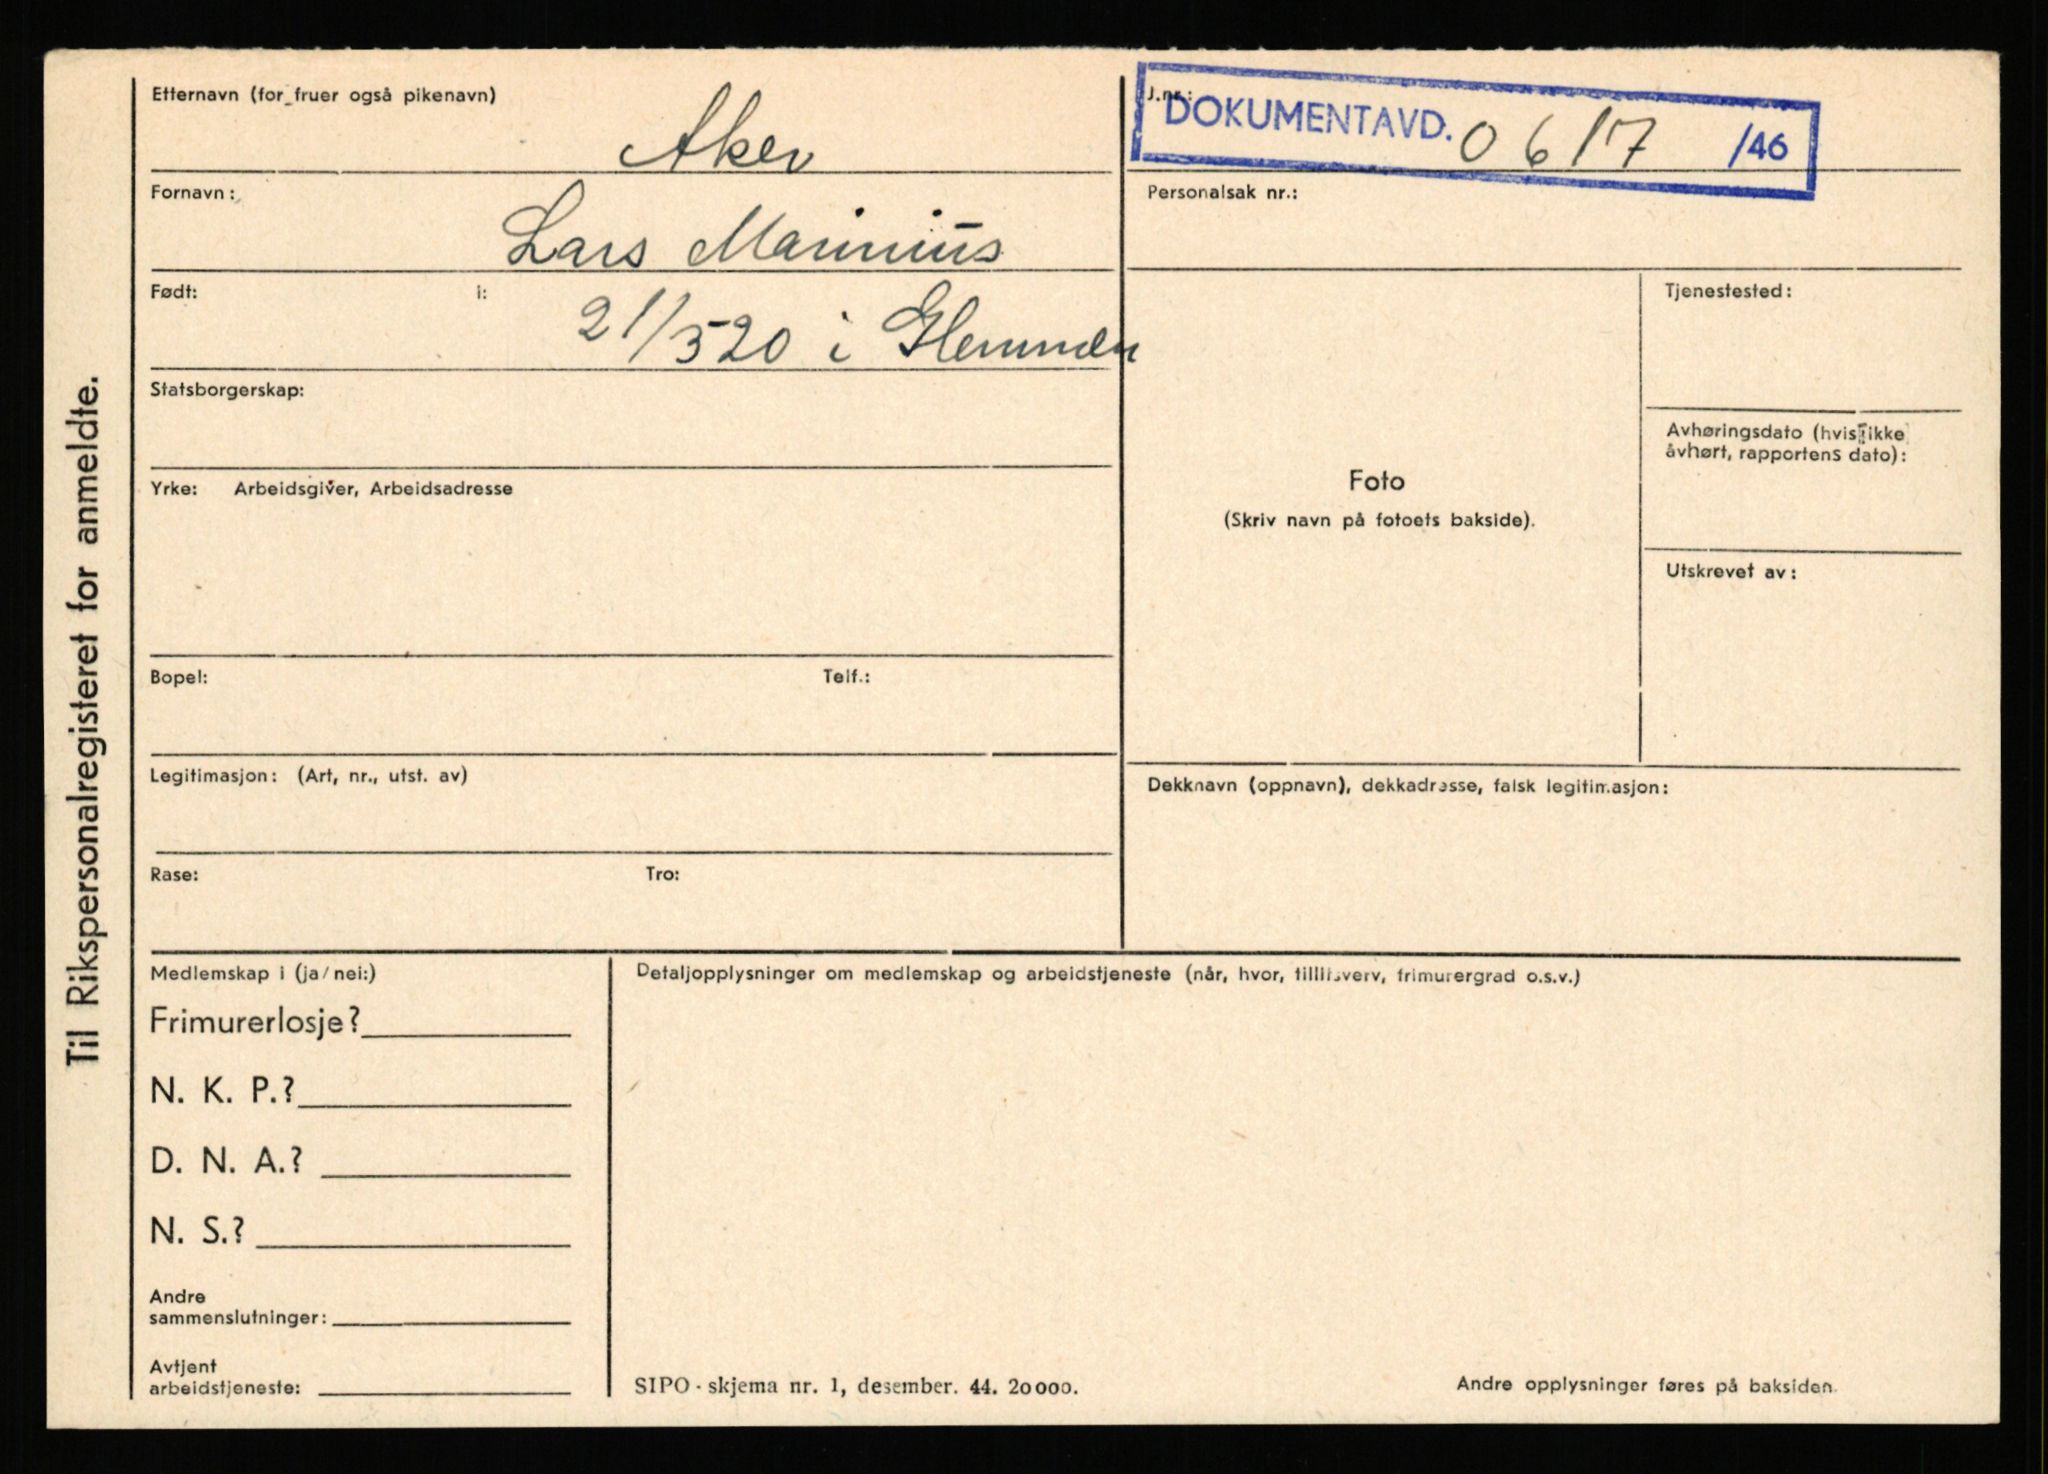 Til Rikspersonalregisteret for anmeldte.
Etternavn (for fruer også pikenavn)
Aker
Fornavn:
Lars Marinius
Født: i:
21/5 20 i Glemmen
Statsborgerskap:
Yrke: Arbeidsgiver, Arbeidsadresse
Bopel: Telf.:
Legitimasjon: (Art, nr., utst. av)
Rase: Tro:
J.nr.:
DOKUMENTAVD. 0617 /46
Personalsak nr.:
Foto
(Skriv navn på fotoets bakside).
Tjenestested:
Avhøringsdato (hvis ikke
avhørt, rapportens dato):
Utskrevet av:
Dekknavn (oppnavn), dekkadresse, falsk legitimasjon:
Medlemskap i (ja/nei:)
Frimurerlosje?
N. K. P.?
D. N. A.?
N. S.?
Andre
sammenslutninger:
Avtjent
arbeidstjeneste:
Detaljopplysninger om medlemskap og arbeidstjeneste (når, hvor, tillitsverv, frimurergrad o.s.v.)
SIPO - skjema nr. 1, desember. 44. 20000.
Andre opplysninger føres på baksiden.